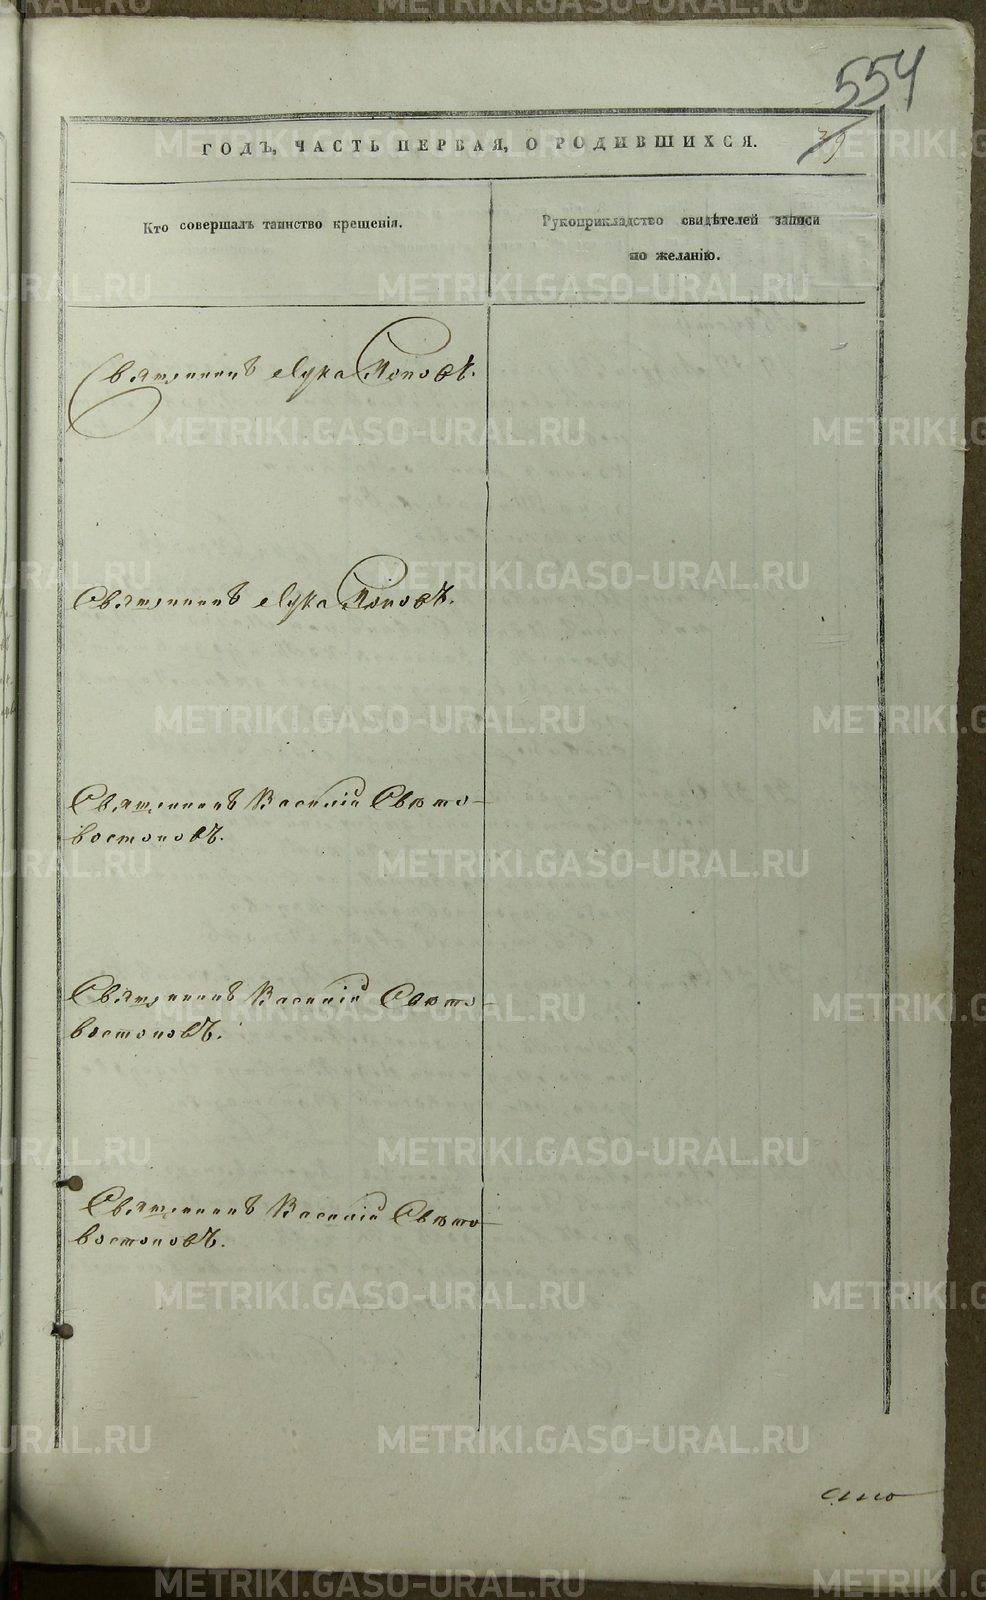 554
39
ГОДЪ, ЧАСТЬ ПЕРВАЯ, О РОДИВШИХСЯ.
Кто совершалъ таинство крещенія.
Рукоприкладство свидѣтелей записи
по желанію.
Священникъ Лука Поповъ.
Священникъ Лука Поповъ.
Священникъ Василій Свѣто-
востоковъ.
Священникъ Василій Свѣто-
востоковъ.
Священникъ Василій Свѣто-
востоковъ.
METRIKI.GASO-URAL.RU